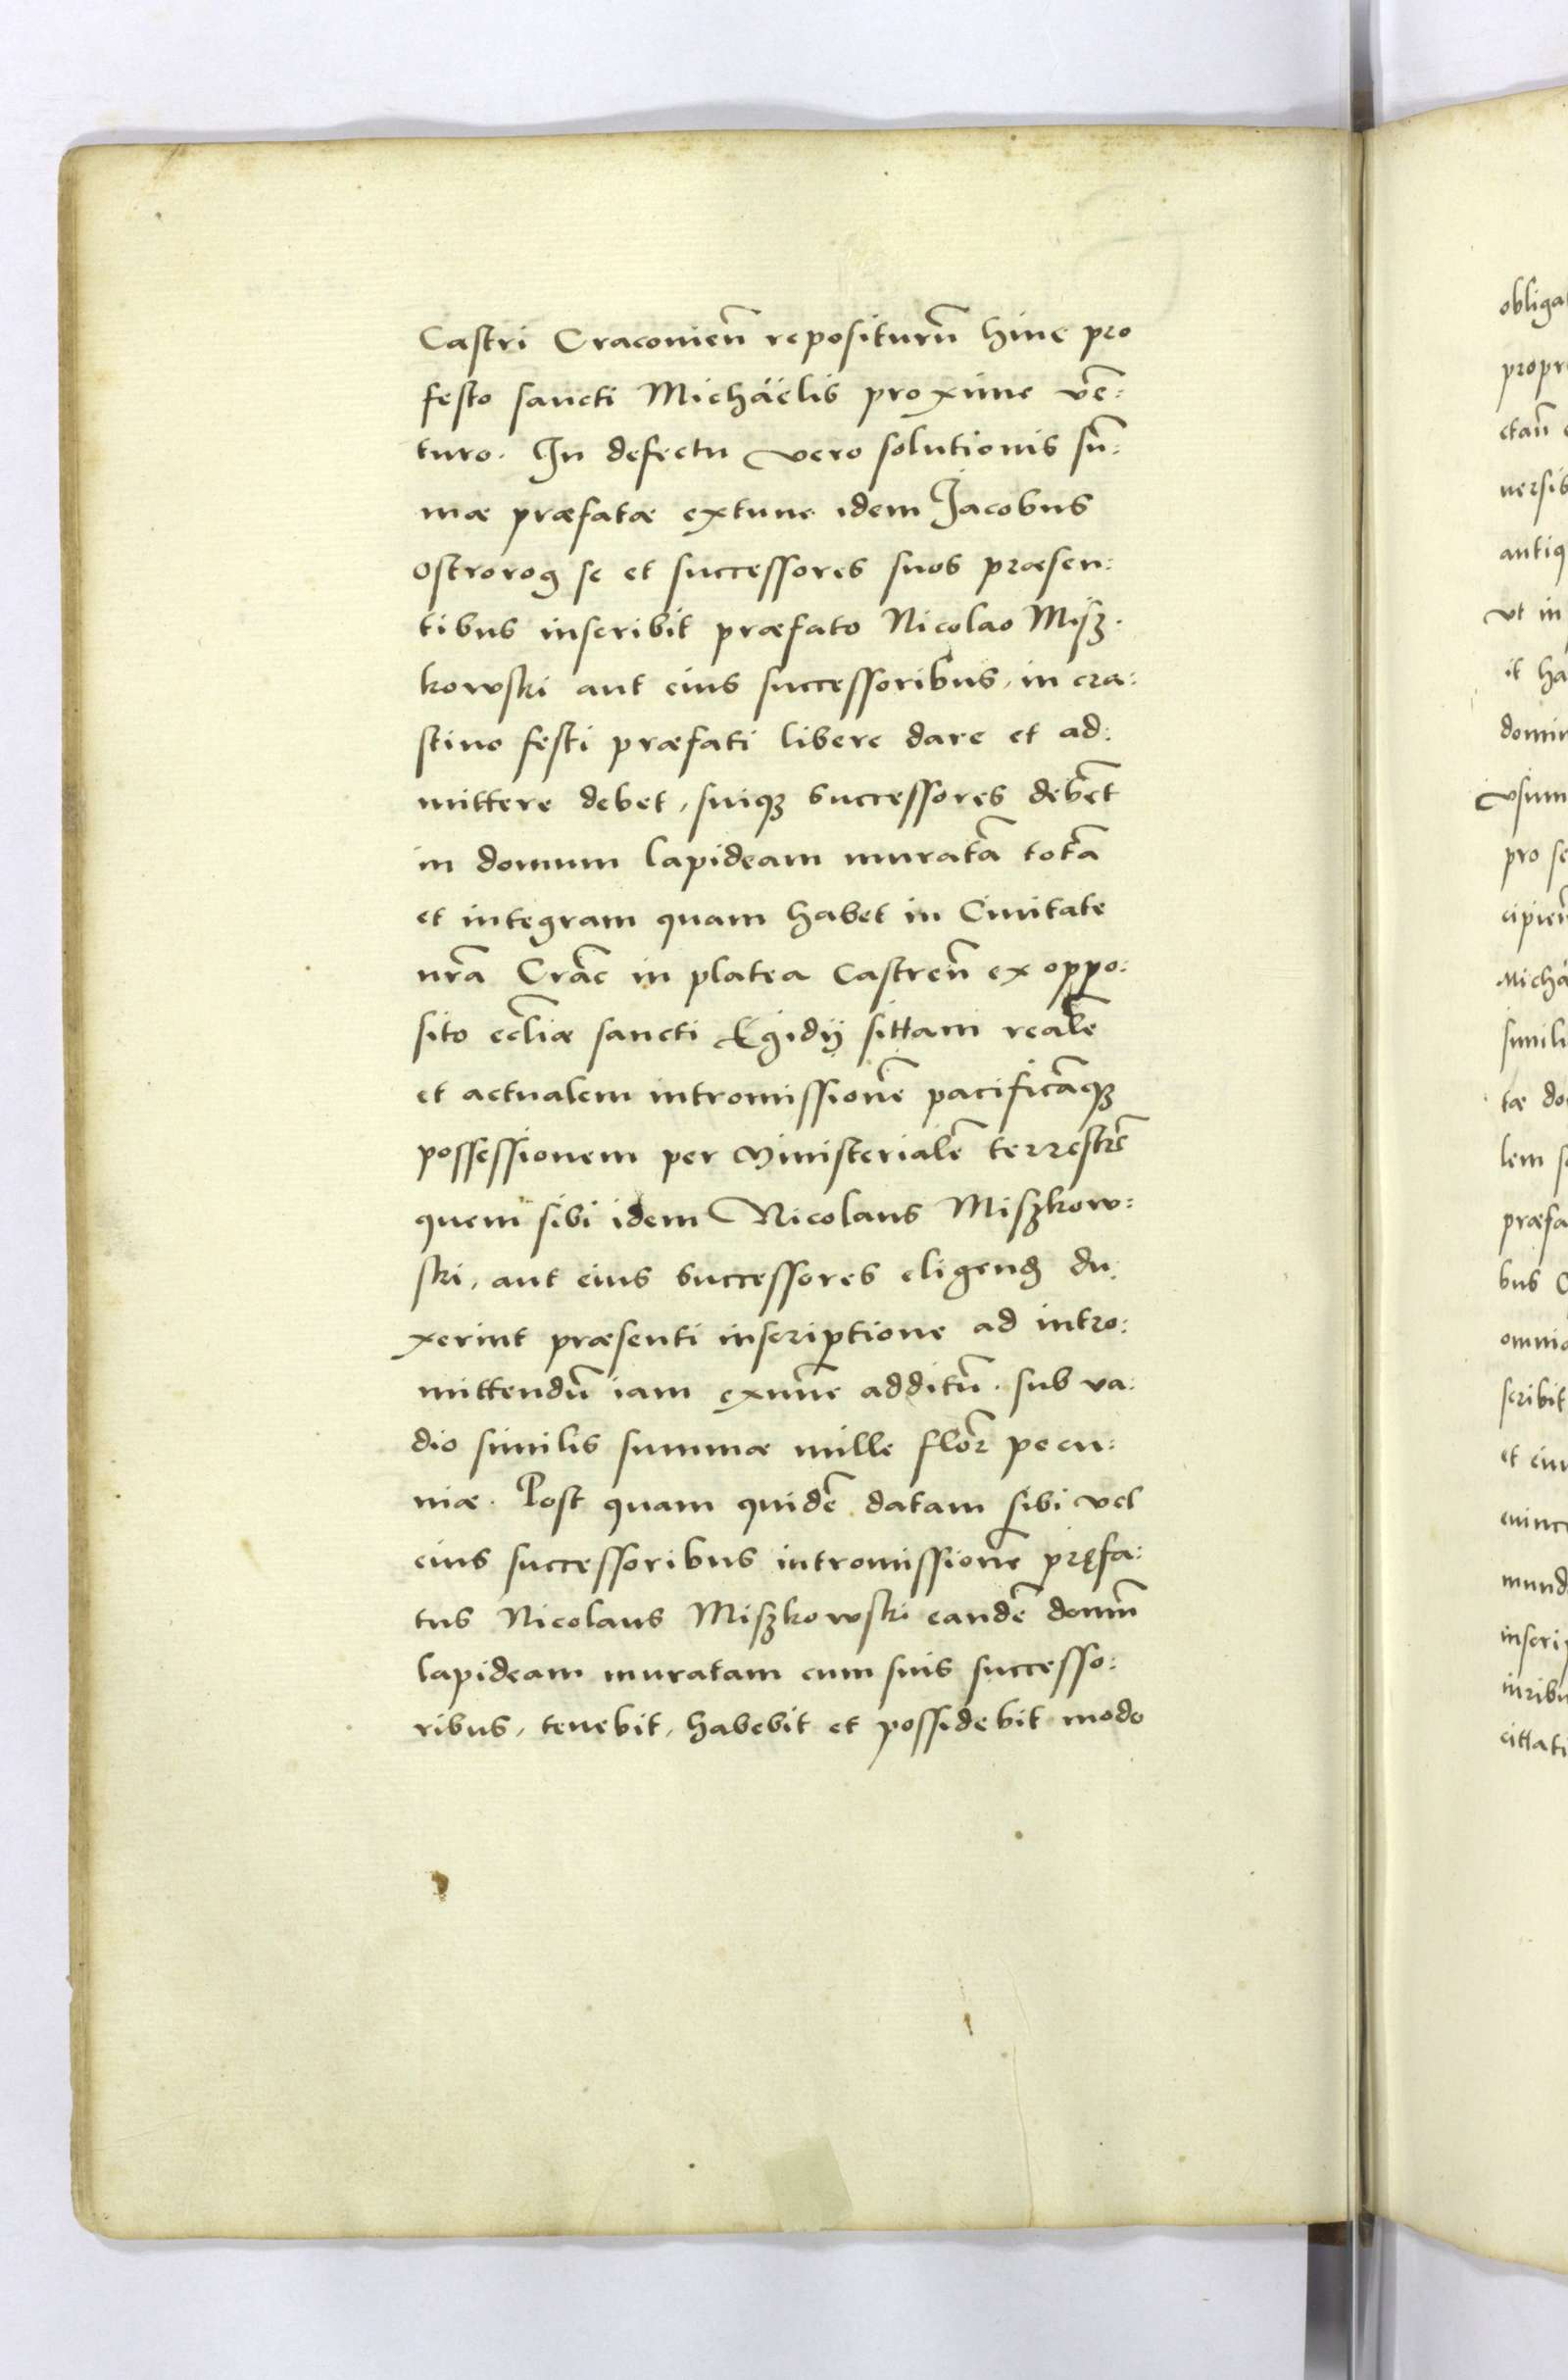 Castri Craconieñ repositurũ hinc pro
festo sancti Michäelis proxime vẽ:
turo. In defectu vero solutionis sũ:
mæ præfatæ extunc idem Jacobus
Ostrorog se et successores suos præsen:
tibus inscribit præfato Nicolao Misz.
kowski aut eius successoribus, in cra:
stino festi præfati libere dare et ad:
mittere debet, suiqȝ successores debẽt
in domum lapideam muratã totã
et integram quam habet in Ciuitate
nrã Crãc in platea Castreñ ex oppo:
sito eccliæ sancti Egidij sittam realẽ
et actualem intromissionẽ pacificãqȝ
possessionem per Ministerialẽ terrestrẽ
quem sibi idem Nicolaus Miszkow:
ski, aut eius successores eligend du:
xerint præsenti inscriptione ad intro:
mittendũ iam exnunc additũ. sub va:
dio similis summæ mille flor̃ pecu:
niæ. Post quam quidẽ datam sibi vel
eius successoribus intromissionẽ pręfa:
tus Nicolaus Miszkowski eandẽ domũ
lapideam muratam cum suis successo:
ribus, tenebit, habebit et possidebit modo
obliga
propr
ctañ
uersis
antiq
vt in
it ha
domin
vsum
pro se
cipien
Micha
simili
tæ do
lem s
præfa
bus
omnia
scribit
et eiu
euinc
mund
inscrip
iuribu
cittati